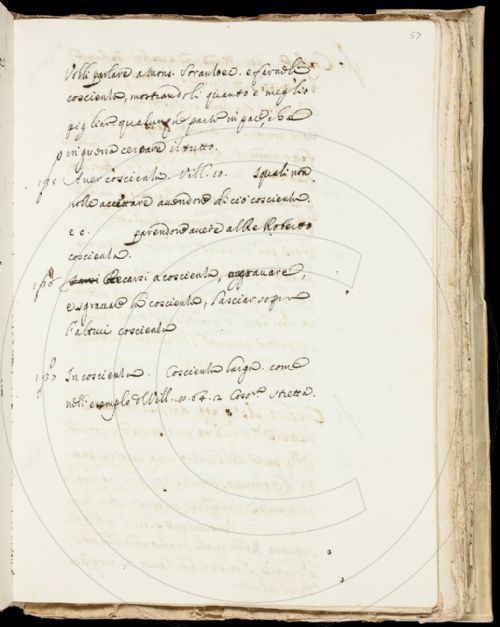 57
Volli parlare a Mons. e farneli
coscienta, mostrandoli quanto è meglio
pigliare qualunque parte in pace, che
in guerra cercare il tutto.
Aver coscienta Vill. 10. i quali non
volle accettare avendone di ciò coscienta.
e c. parendone avere al Re Roberto
coscienta.
Recarsi a coscienta, aggravare,
e sgravare la coscienta, Lasciar sopra
l'altrui coscienta
In coscienta. Coscienta larga. come
nell'esempio d Vill. p. 64. 12 stretta.